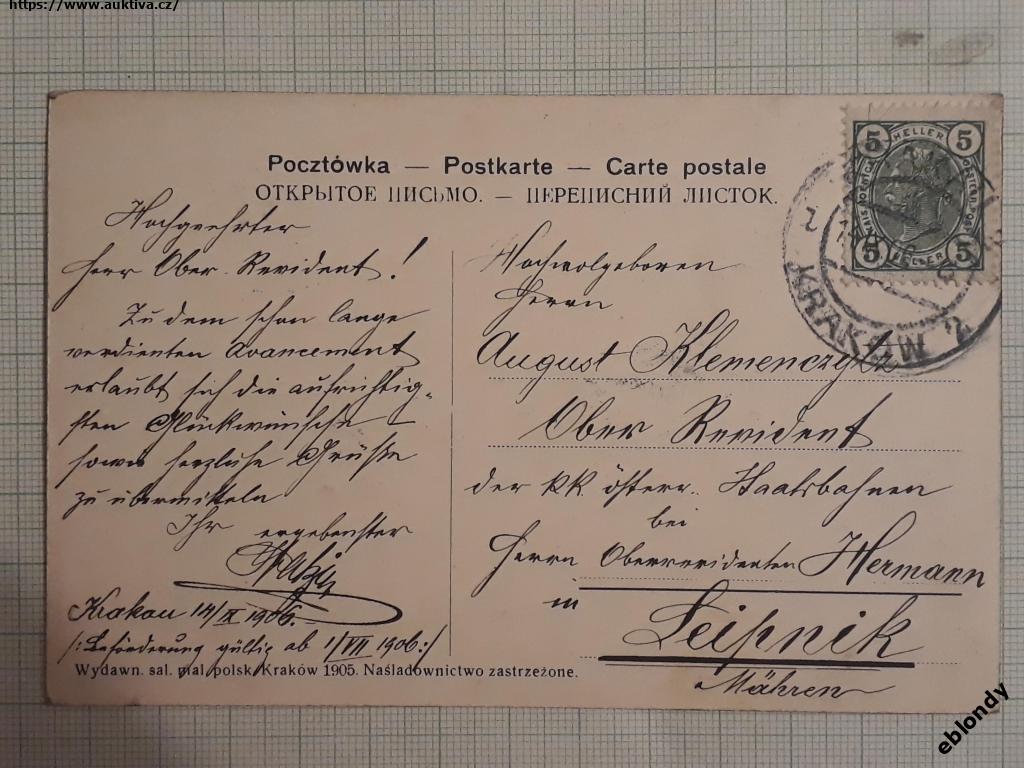 https://www.auktiva.cz/
Pocztówka — Postkarte — Carte postale
ОТКРЫТОЕ ПИСЬМО. — ПЕРЕПИСНИЙ ЛИСТОК.
5 HELLER 5
5 HELLER 5
KRAKÓW 2
Hochgeehrter
Herr Ober-Revident!
Zu dem schon lange
verdienten Avancement
erlaubt sich die aufrichtig-
sten Glückwünsche
sowie herzliche Grüße
zu übermitteln
Ihr ergebenster
Krakau 14/IX 1906.
/: Beförderung gültig ab 1/VII 1906 :/
Hochwolgeboren
Herrn
August Klemenczytz
Ober Revident
der KK. österr. Staatsbahnen
bei
Herrn Oberrevidenten Hermann
in
Leipnik
Mähren
Wydawn. sal. mal. polsk. Kraków 1905. Naśladownictwo zastrzeżone.
eblondy